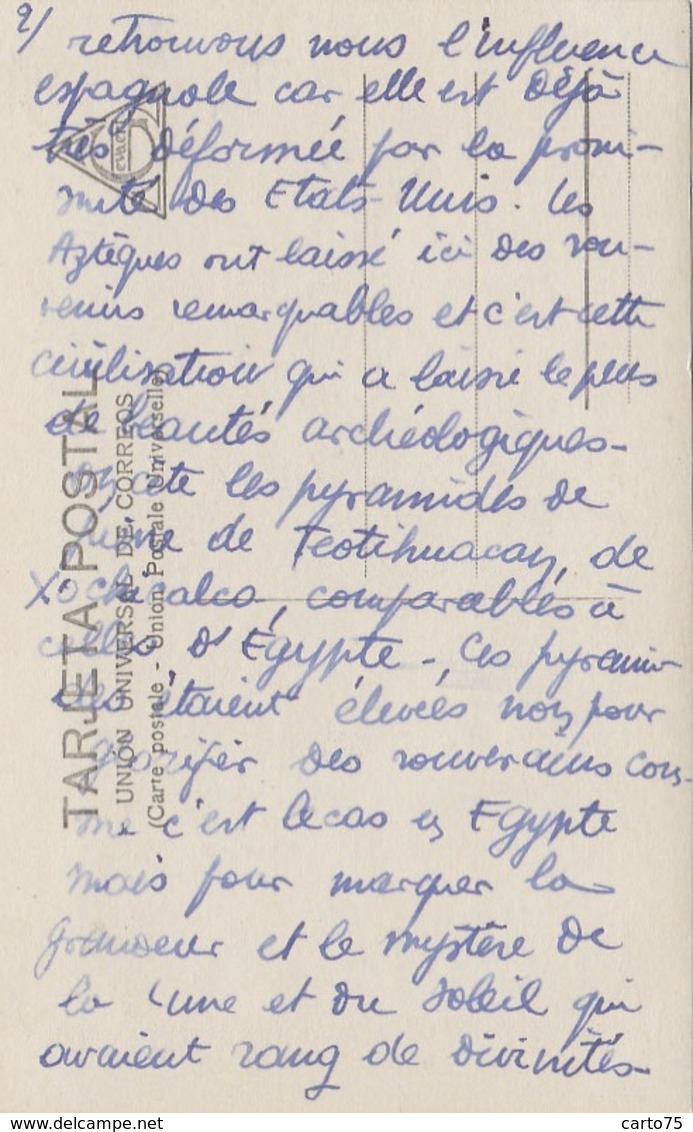 2/ retrouvons nous l'influence
espagnole car elle est déjà
très déformée par la proxi-
mité des Etats-Unis. Les
Aztèques ont laissé ici des sou-
venirs remarquables et c'est cette
civilisation qui a laissé le plus
de beautés archéologiques-
les pyramides de
de Teotihuacan, de
Xochicalco, comparables à
celles d'Égypte -, ces pyrami-
des étaient élevées non pour
glorifier des souverains com-
me c'est le cas en Egypte
mais pour marquer la
grandeur et le mystère de
la Lune et du Soleil qui
avaient rang de divinités-
TARJETA POSTAL
UNION UNIVERSAL DE CORREOS
(Carte postale - Union Postale Universelle)
delcampe.net
carto75